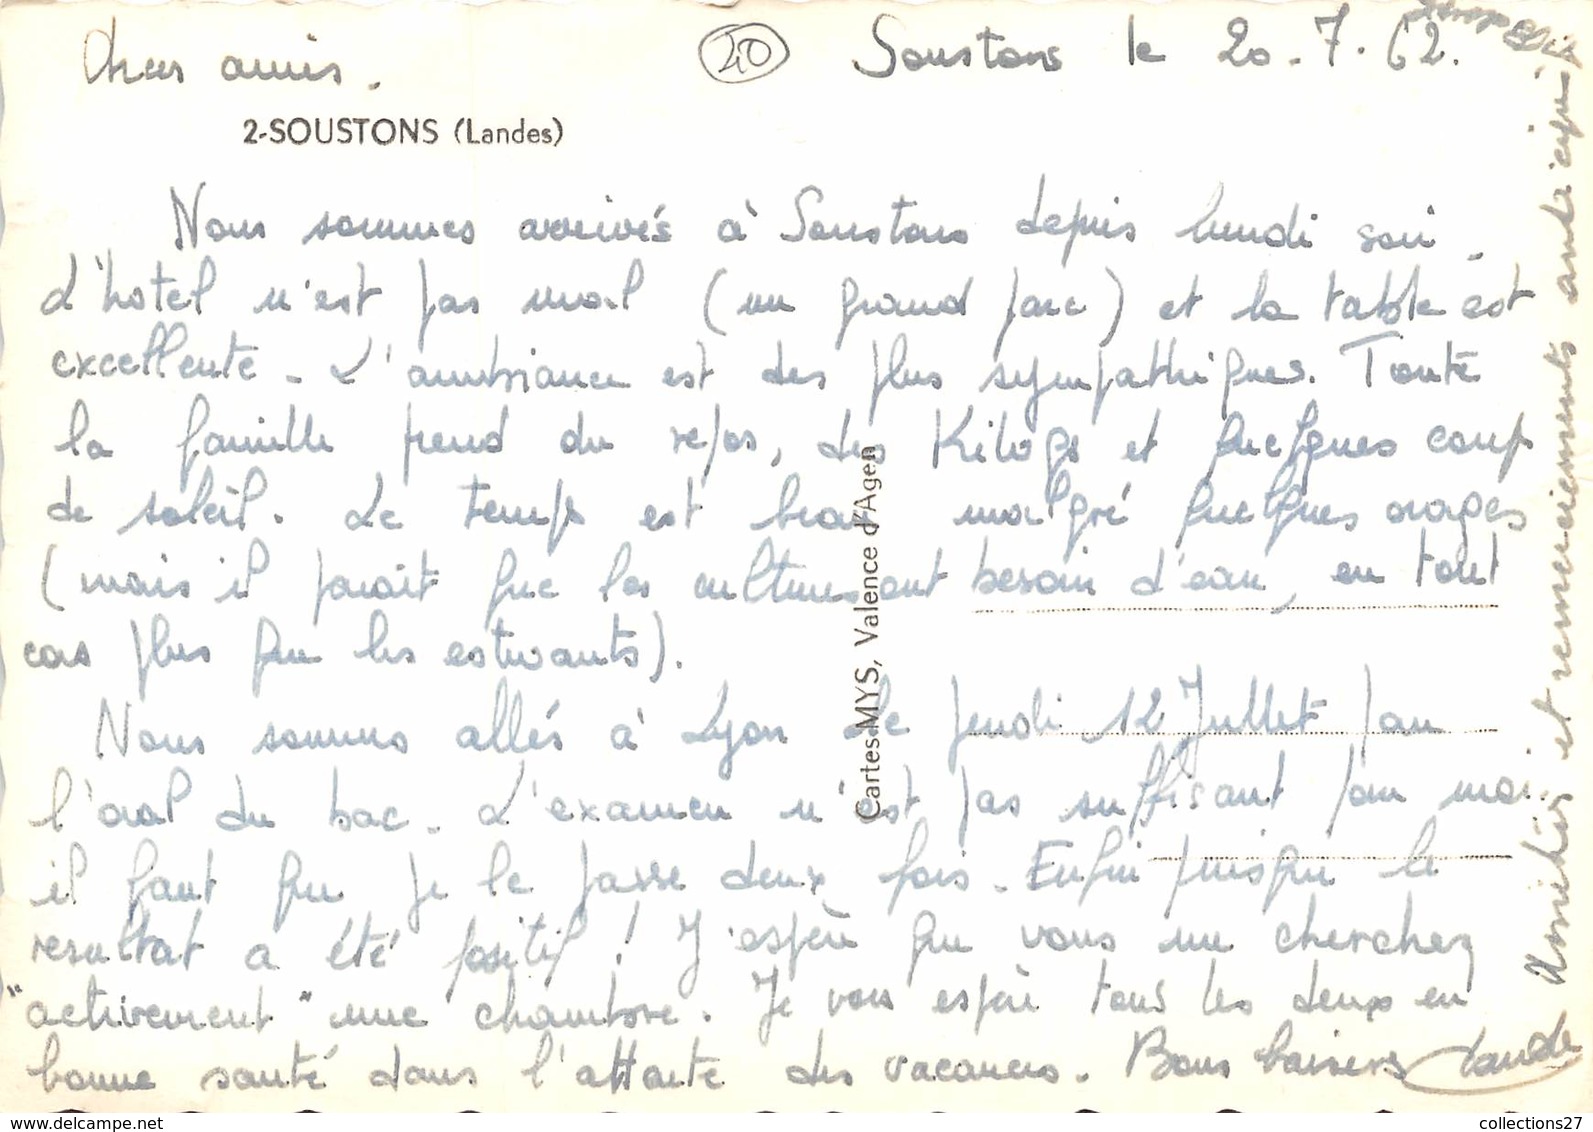 Chers amis.
20
Soustons le 20.7.62.
2-SOUSTONS (Landes)
Nous sommes arrivés à Soustons depuis lundi soir.
L'hotel n'est pas mal (un grand parc) et la table est
excellente. L'ambiance est des plus sympathiques. Toute
la famille prend du repos, des Kilogs et quelques coup
de soleil. Le temps est beau malgré quelques orages
(mais il parait que les cultures ont besoin d'eau, en tout
cas plus que les estivants).
Nous sommes allés à Lyon le jeudi 12 Juillet pour
l'oral du bac. L'examen n'est pas suffisant pour moi
il faut que je le passe deux fois. Enfin puisque le
resultat a été positif ! J'espère que vous me cherchez
"activement" une chambre. Je vous espère tous les deux en
bonne santé dans l'attente des vacances. Bons baisers Claude
Amitiés et remerciements anticipés
Cartes MYS, Valence d'Agen
collections27